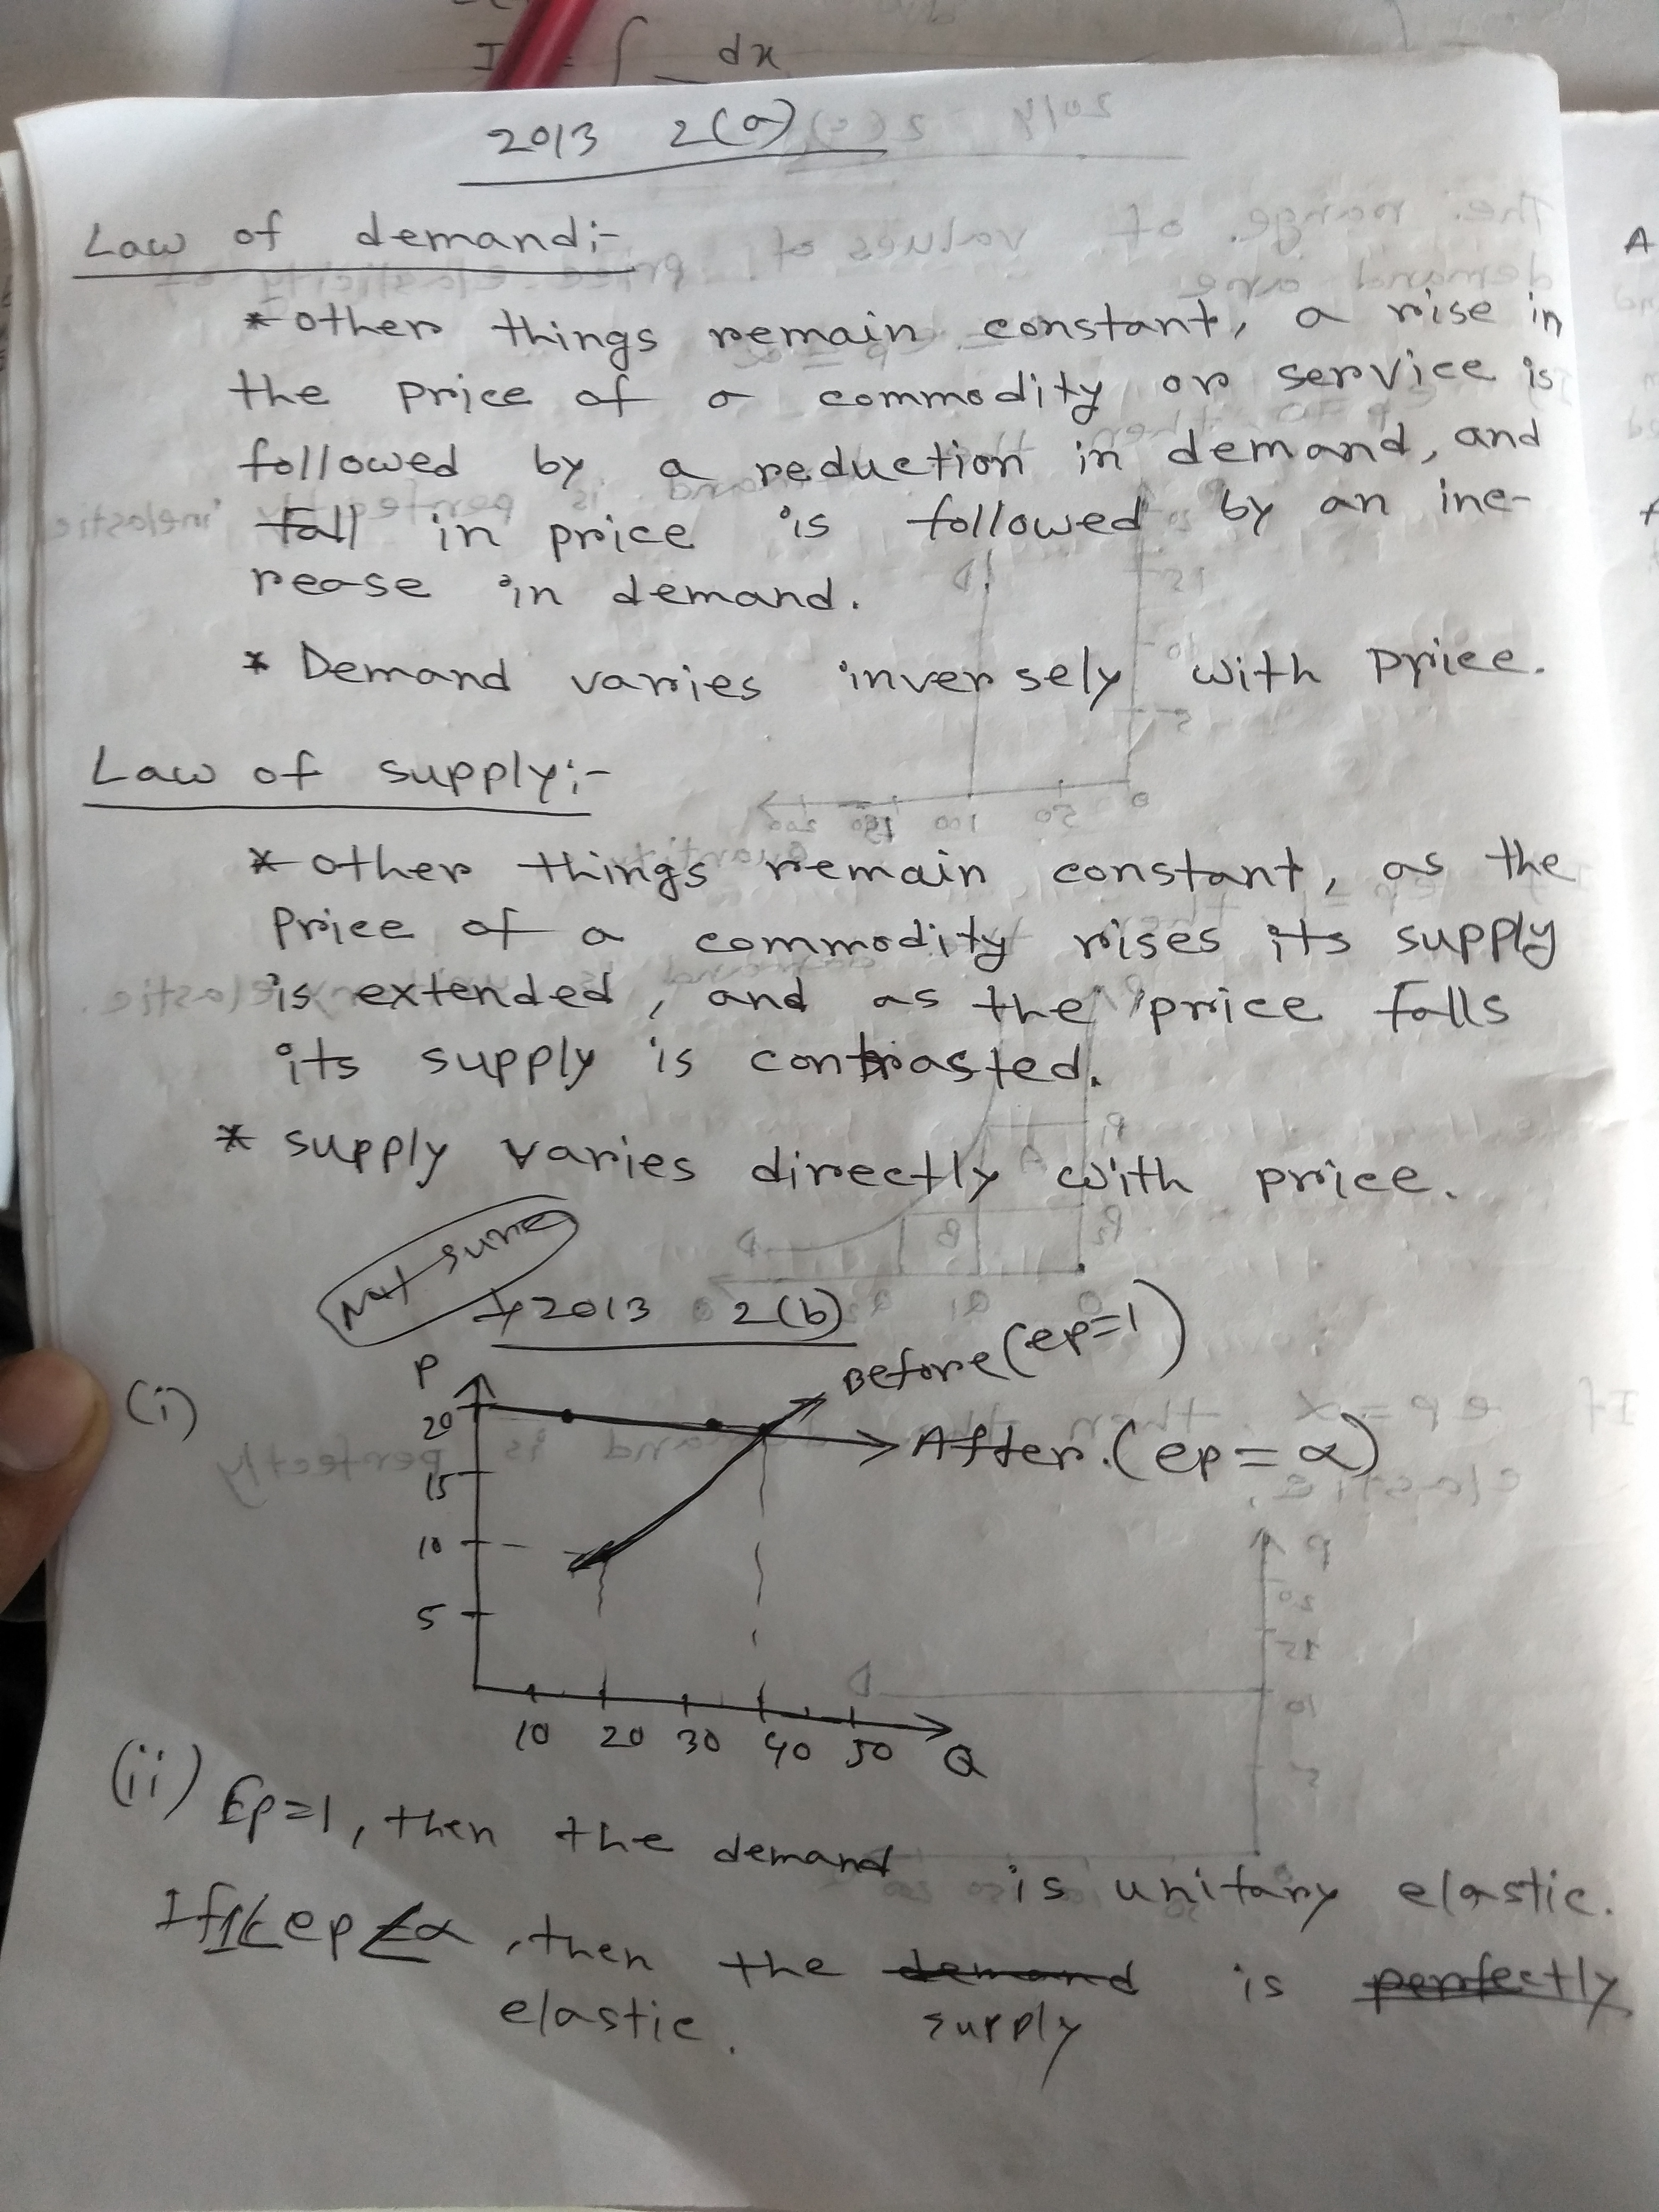 I = ∫ dx
2013 2(a)
Law of demand:-
* other things remain constant, a rise in
the price of a commodity or service is
followed by a reduction in demand, and
fall in price is followed by an inc-
rease in demand.
* Demand varies inversely with price.
Law of supply:-
* other things remain constant, as the
Price of a commodity rises its supply
is extended, and as the price falls
its supply is contrasted.
* supply varies directly with price.
Not sure
2013 2(b)
(i)
P
Before (ep=1)
20
After. (ep = α)
15
10
5
10 20 30 40 50 Q
(ii) Ep=1, then the demand is unitary elastic.
If 1< ep < α, then the demand is perfectly
elastic. supply